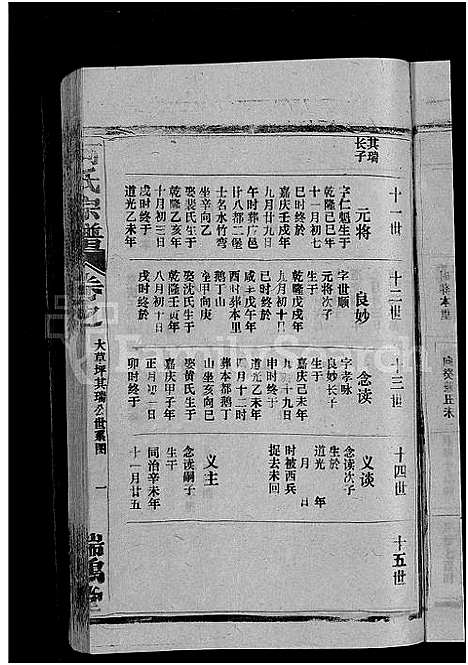 十一世
十二世
十三世
十四世
十五世
其瑞
长子
元将
字仁魁生于
乾隆己巳年
十一月初七
巳时终于
嘉庆壬戌年
九月廿九日
午时葬广邑
廿八都二保
士名水竹弯
坐辛向乙
娶裴氏生于
乾隆乙亥年
十月初三日
戌时终于
道光乙未年
良妙
字世顺
元将次子
生于
乾隆戊戌年
九月初十日
咸丰戊午年
酉时葬本里
鹅丁山
坐甲向庚
娶沈氏生于
乾隆壬寅年
八月初十日
戌时终於
念读
字孝咏
良妙长子
生于
嘉庆己未年
九月十九日
申时终于
道光乙未年
四月十三时
葬本都鹅丁
山坐亥向巳
娶黄氏生于
嘉庆甲子年
正月初三日
卯时终于
义谈
念读次子
生於
道光年
月日
时被西兵
捉去未回
义主
念读嗣子
生于
同治辛未年
十一月廿五
氏宗谱
卷之
大草坪其瑞公世系图
一